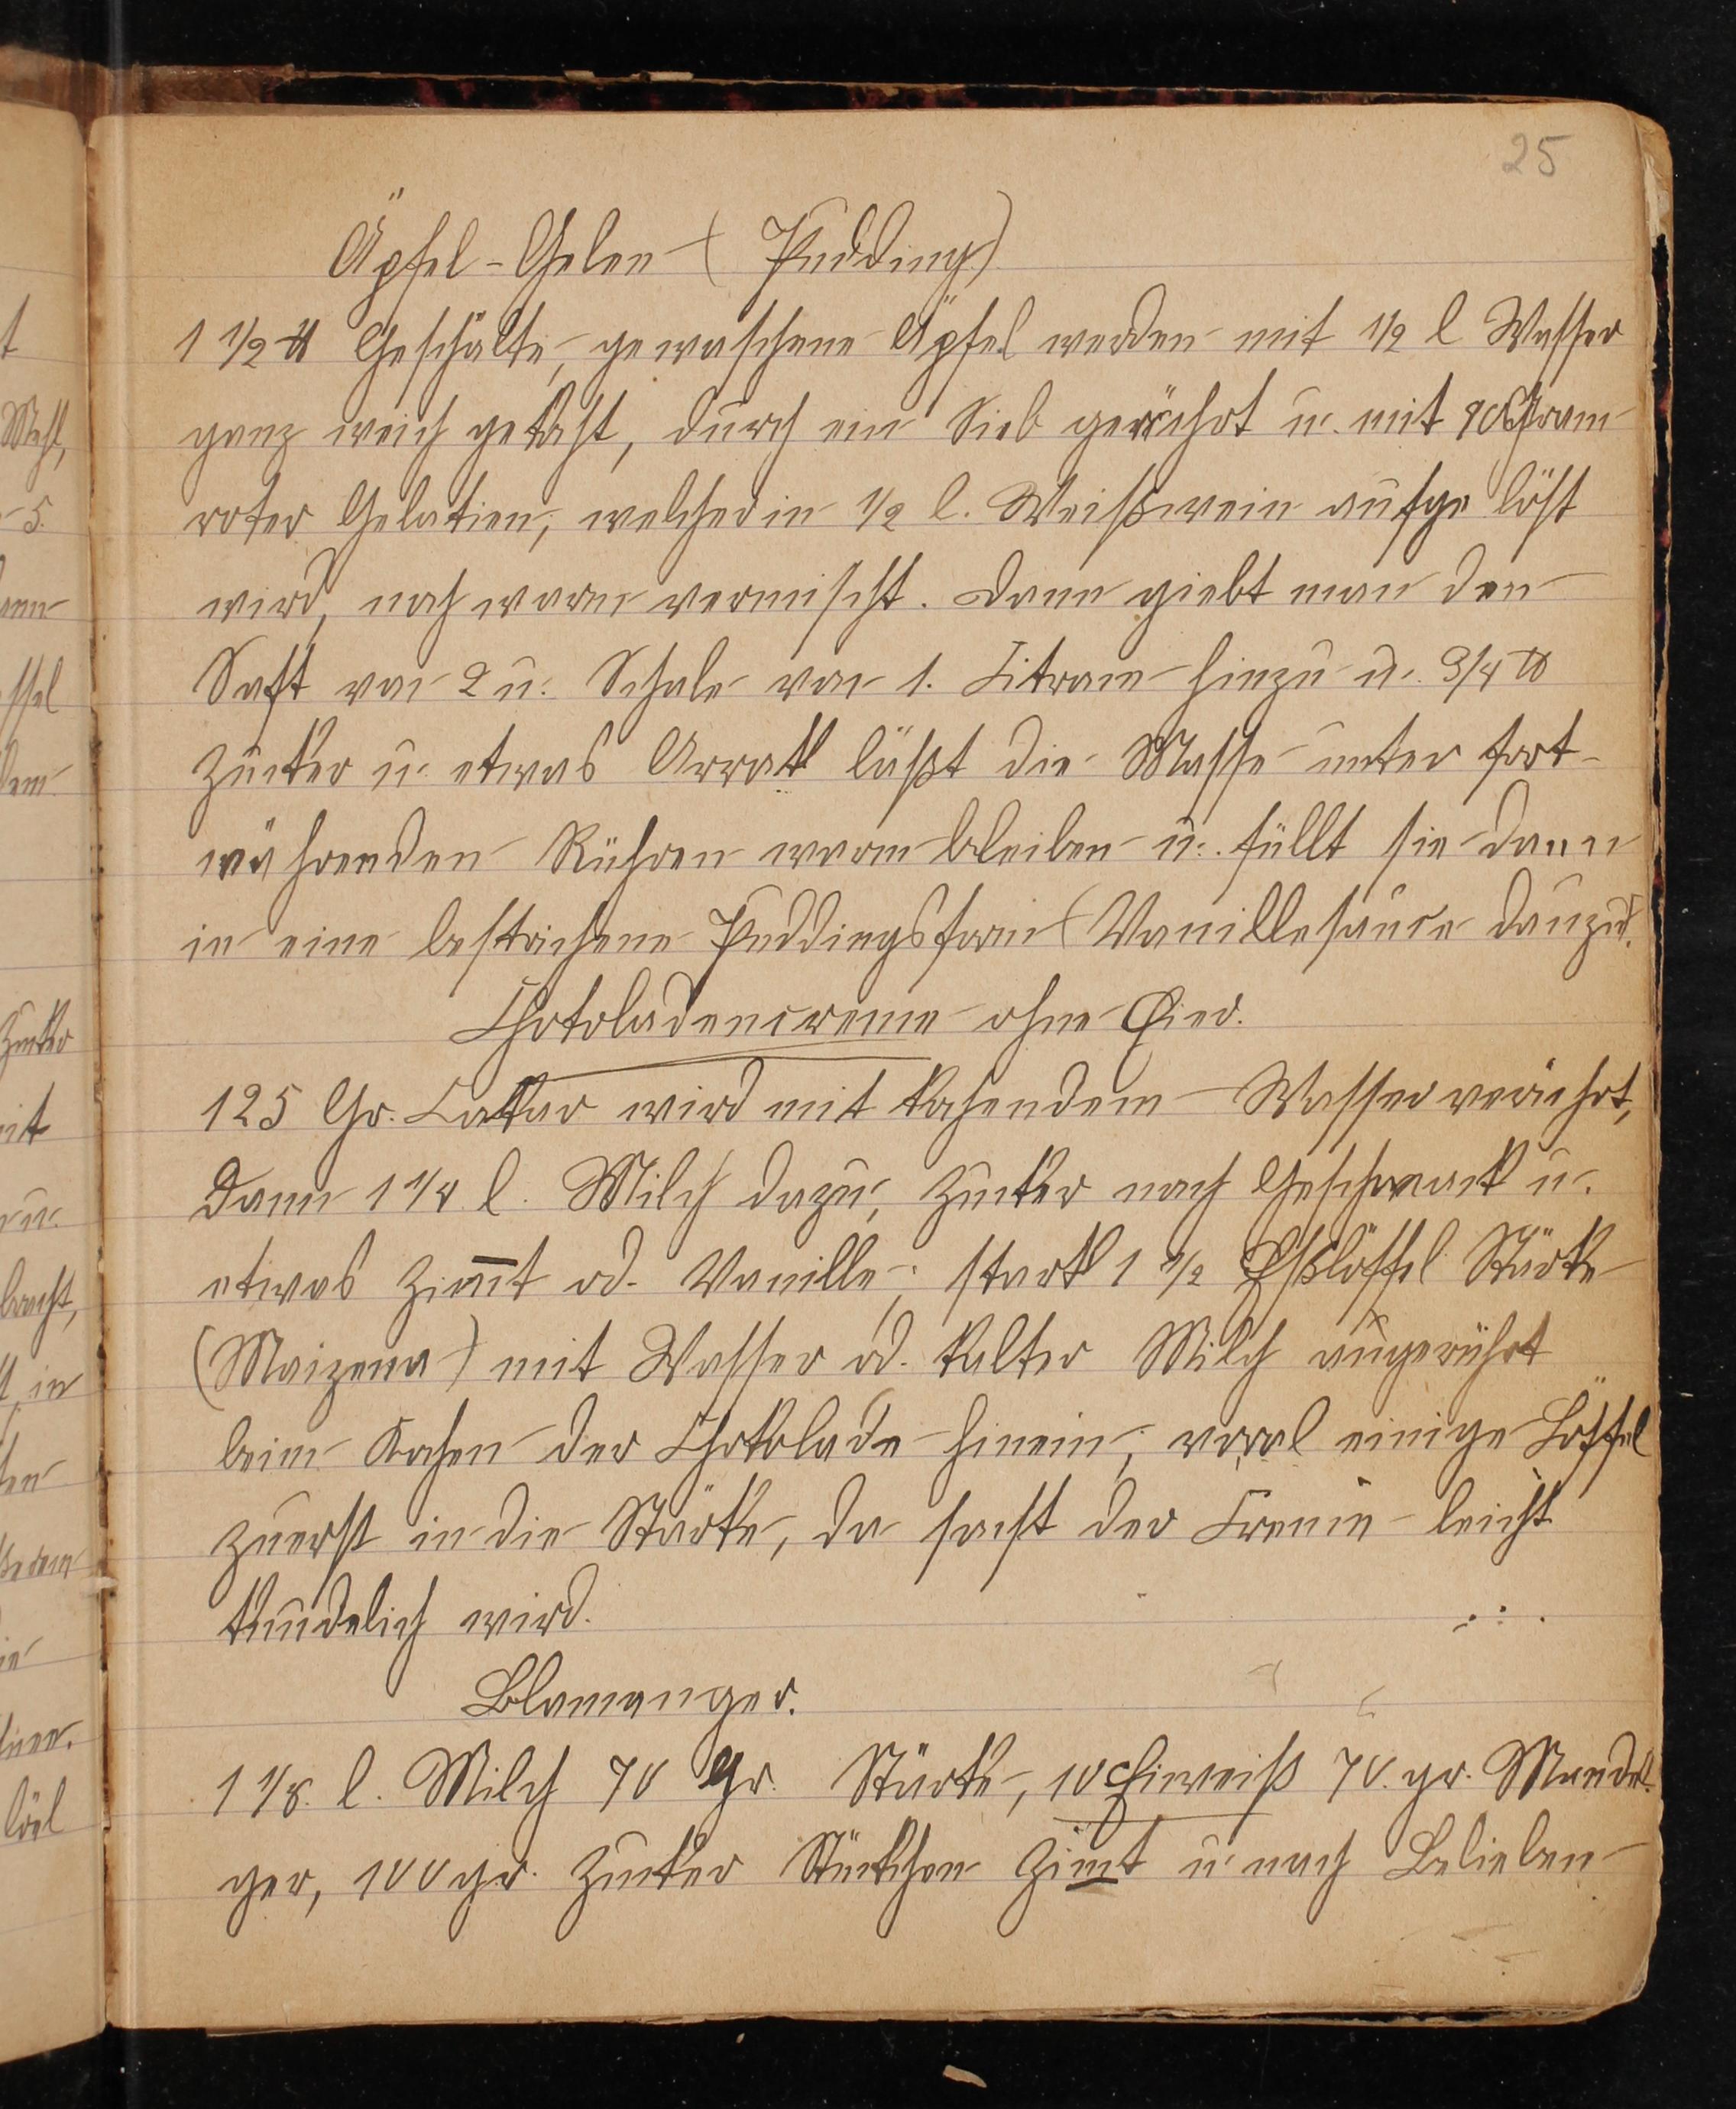 25
Äpfel-Gelee (Pudding)
1 1/2 ℔ Geschälte, gewaschene Äpfel werden mit 1/2 l Wasser
ganz weich gekocht, durch ein Sieb gerührt u. mit Gram
roter Gelatien, welcher in 1/2 l. Weißwein aufge löst
wird, noch warm vermischt. Dann giebt man den
Saft von 2 u. Schale von 1. Citrone hinzu u. 3/4 ℔
Zucker u. etwas Arrak läßt die Masse unter fort-
währenden Rühren warm bleiben u. füllt sie dann
in eine bestrichene Puddingsform (Vanillesauce dazu).
Chokoladencreme ohne Eier.
125 Gr. Cakao wird mit kochendem Wasser verrührt,
dann 1 1/4 l. Milch dazu, Zucker nach Geschmack u.
etwas Zim̅t od. Vanille, stark 1 1/2 Eßlöffel Stärke
(Maizena) mit Wasser od. kalter Milch angerührt
beim Kochen der Chokolade hinein, einige Löffel
zuerst in die Stärke, da sonst der Creme leicht
wird.
Blamanger.
1 1/8. l. Milch 70 gr. Stärke, 10 Eiweiß 70. gr. Mandel
ger, 100 gr. Zucker Stückchen Zimt u. nach Belieben
Mehl,
5.
ssel
dem
Zucker
mit
u.
bracht,
in